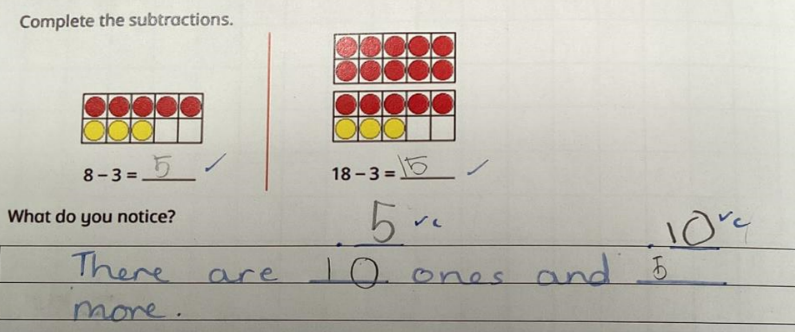 Complete the subtractions.
8 – 3 = 5 ✓
18 – 3 = 15 ✓
What do you notice?
5 vc
10 vc
There are 10 ones and 5
more.